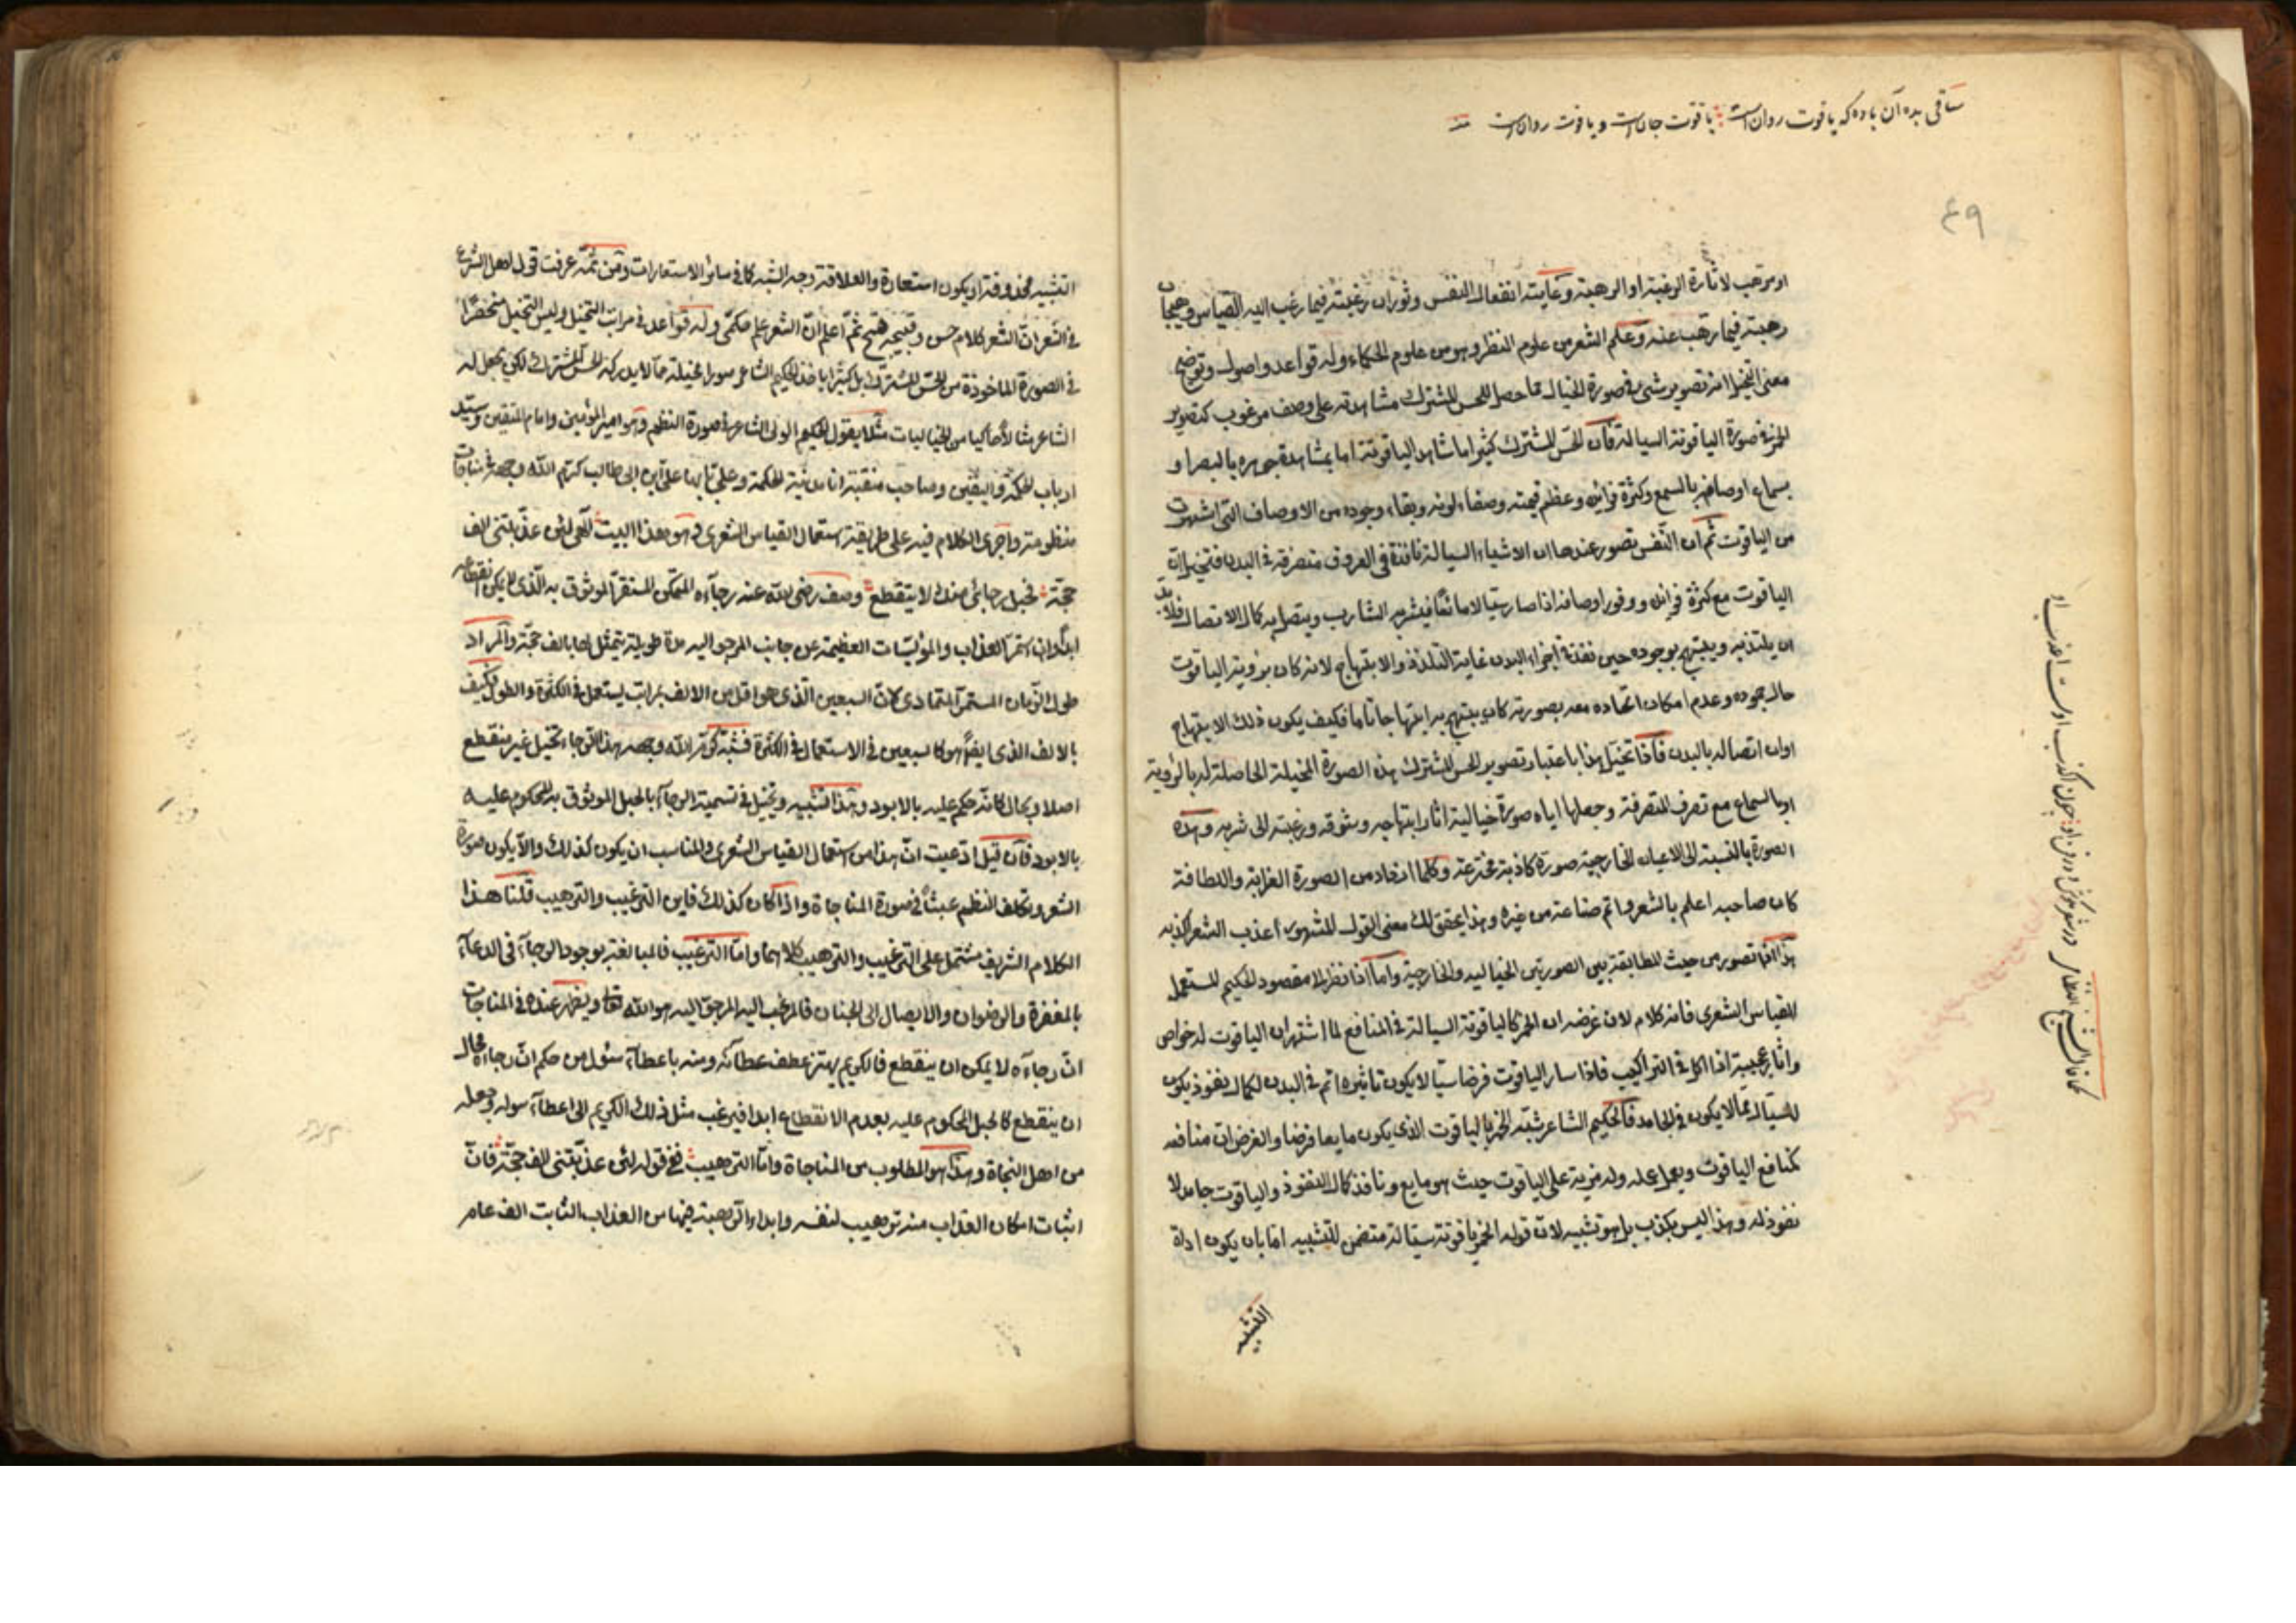 ساقی بده آن باده که یاقوت روان است یا قوت جان است و یا قوت روان است
٤٩
او مرهب لاثارة الرغبة او الرهبة وغايته انفعال النفس وثوران رغبته فيما رغب اليه القياس وهيجان
رهبته فيما رهب عنه وعلم الشعر من علوم النظر وهو من علوم الحكماء وله قواعد واصول وتوضيح
معنى التخيل انه تصوير شئ في صورة الخيال مما حصل للحس المشترك مشاهدته على وصف مرغوب كتصوير
الخمر في صورة الياقوتة السيالة فان الحس المشترك كثيرا ما شاهد الياقوتة اما بمشاهدة جوهره بالبصر او
بسماع اوصافه بالسمع وكثرة فوائده وعظم قيمته وصفاء لونه وبقاء وجوده من الاوصاف التى اشتهرت
من الياقوت ثم ان النفس تصور عندها ان الاشياء السيالة نافذة فى العروق متصرفة فى البدن فتخيل ان
الياقوت مع كثرة فوائده ووفور اوصافه اذا صار سيالا مائعا فيشربه الشارب ويتصل به كمال الاتصال فلابد
ان يلتذ به ويبتهج بوجوده حين نفذ في اجزاء البدن غاية التلذذ والابتهاج لانه كان برؤية الياقوت
حال جموده وعدم امكان اتحاده معه بصورته كان يبتهج به ابتهاجا تاما فكيف يكون ذلك الابتهاج
اوان اتصاله بالبدن فاذا تخيل هذا باعتبار تصوير الحس المشترك هذه الصورة المخيلة الحاصلة له بالرؤية
او بالسماع مع تصرف المتصرفة وجعلها اياه صورة خيالية اثار ابتهاجه وشوقه ورغبته الى شربه وهذه
الصورة بالنسبة الى الاعيان الخارجية صورة كاذبة مخترعة وكلما ازداد من الصورة الغرابة واللطافة
كان صاحبه اعلم بالشعر واتم صناعة من غيره وبهذا يحقق لك معنى القول المشهور اعذب الشعر اكذبه
هذا اذا تصور من حيث المطابقة بين الصورتين الخياليه والخارجية واما اذا نظر الا مقصود الحكيم المستعمل
للقياس الشعرى فانه كلام لان غرضه ان الخمر كالياقوتة السيالة فى المنافع لما اشتهر ان الياقوت له خواص
واثار عجيبة اذا اكل فى التراكيب فاذا سار الياقوت فرضا سيالا يكون تاثيره اتم فى البدن لكمال نفوذ يكون
للسيال مما لا يكون فى الجامد فالحكيم الشاعر شبه الخمر بالياقوت الذى يكون مايعا فرضا والغرض ان منافعه
كمنافع الياقوت ويعمل عمله وله مزية على الياقوت حيث هو مايع ونافذ كمال النفوذ والياقوت جامد لا
نفوذ له وهذا ليس بكذب بل هو تشبيه لان قوله الخمر ياقوتة سيالة متضمن للتشبيه اما بان يكون اداة
التشبيه
كما قال الشيخ النظامى در شعر مپیچ و در فن او چون اکذب اوست احسن او
التشبيه محذوفة او يكون استعارة والعلاقة وجه الشبه كما فى سائر الاستعارات ومن ثمة عرفت قول اهل الشرع
فى الشعر ان الشعر كلام حسن وقبيحه قبيح ثم اعلم ان الشعر علم حكمى وله قواعد فى مراتب التخيل وليس التخيل منحصرا
فى الصورة الماخوذة من الحس المشترك بل كثيرا ياخذ الحكيم الشاعر صورا مخيلة مما لا يدركه الحس المشترك لكن يجعل له
الشاعر مثالا محاكيا من الخياليات مثلا يقول الحكيم الولى الشاعر فى صورة النظم وهو امير المؤمنين وامام المتقين وسيد
ارباب الحكمة واليقين وصاحب منقبة انا مدينة الحكمة وعلى بابها على ابن ابى طالب كرم الله وجهه فى مناجات
منظومته واجرى الكلام فيه على طريقة استعمال القياس الشعرى وهو هذا البيت الهى لئن عذبتنى الف
حجة فحبل رجائى منك لا يتقطع وصف رضى الله عنه رجاءه المتمكن المستقر الموثوق به الذى لا يمكن انقطاعه
ابدا وان استمر العذاب والمؤيسات العظيمة عن جانب المرجو اليه مدة طويلة يتمثل لها بالف حجة والمراد
طول الزمان المستمر المتمادى كان السبعين الذى هو اقل من الالف بمراتب يستعمل فى الكثرة والطول فكيف
بالالف الذى ايضا هو كالسبعين فى الاستعمال فى الكثرة فشبه كرم الله وجهه هذا الرجاء بحبل غير منقطع
اصلا وبحال كانه حكم عليه بالابود وهذا تشبيه وتخيل فى تسمية الرجاء بالحبل الموثوق به المحكوم عليه
بالابود فان قيل ادعيت ان هذا من استعمال القياس الشعرى والمناسب ان يكون كذلك والا يكون صورة
الشعر وتكلف النظم عبثا فى صورة المناجاة واذا كان كذلك فاين الترغيب والترهيب قلنا هذا
الكلام الشريف مشتمل على الترغيب والترهيب كلاهما واما الترغيب فالمبالغة بوجود الرجاء فى الدعاء
بالمغفرة والرضوان والايصال الى الجنان فالمرغب اليه المرجو اليه هو الله تعا ويظهر عنده فى المناجات
ان رجاءه لا يمكن ان ينقطع فالكريم يهتز عطف عطائه ومنه باعطاء سئول من حكم ان رجاءه محال
ان ينقطع كالحبل المحكوم عليه بعدم الانقطاع ابدا فيرغب مثل ذلك الكريم الى اعطاء سوله وجعله
من اهل النجاة وهذا هو المطلوب من المناجاة واما الترهيب ففى قوله لئن عذبتنى الف حجة فان
اثبات امكان العذاب منه ترهيب لنفسه وابداء الرهبة فيها من العذاب الثابت الف عام